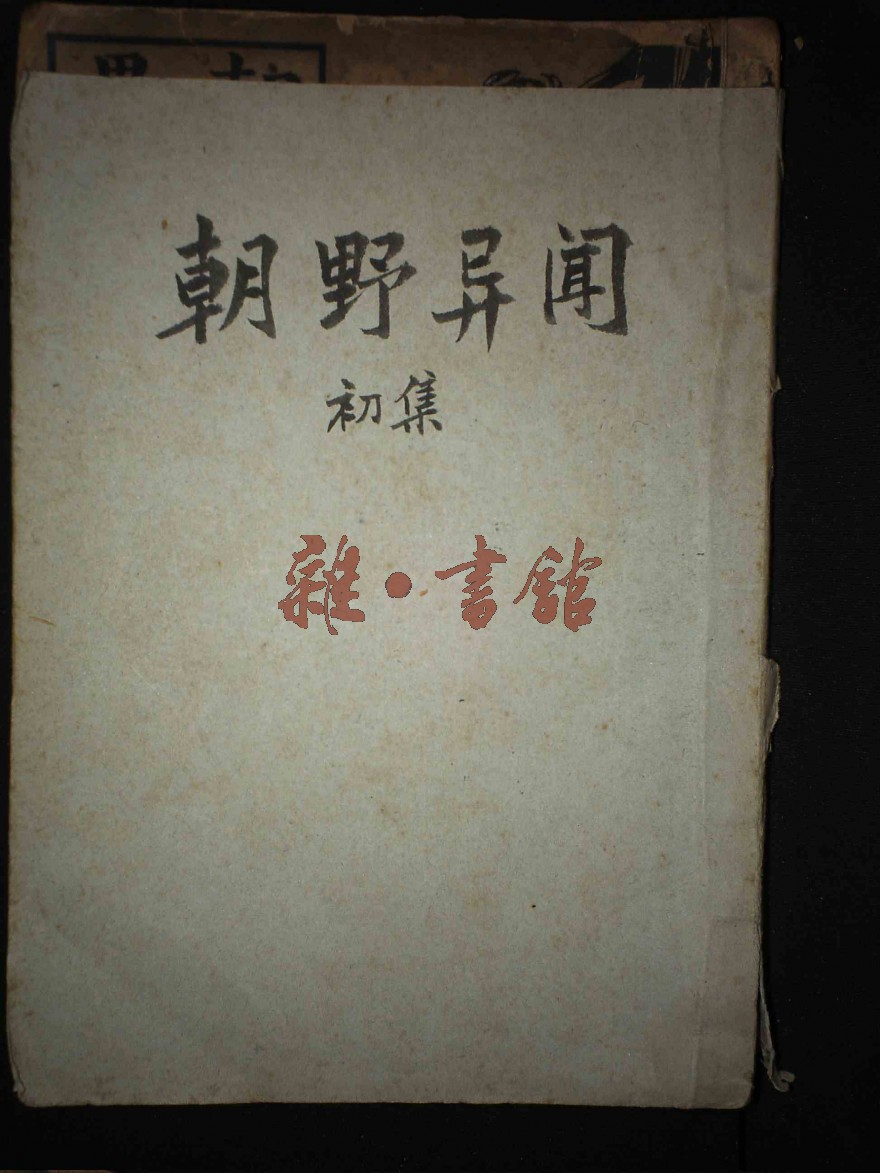 朝野异闻
初集
雜·書館